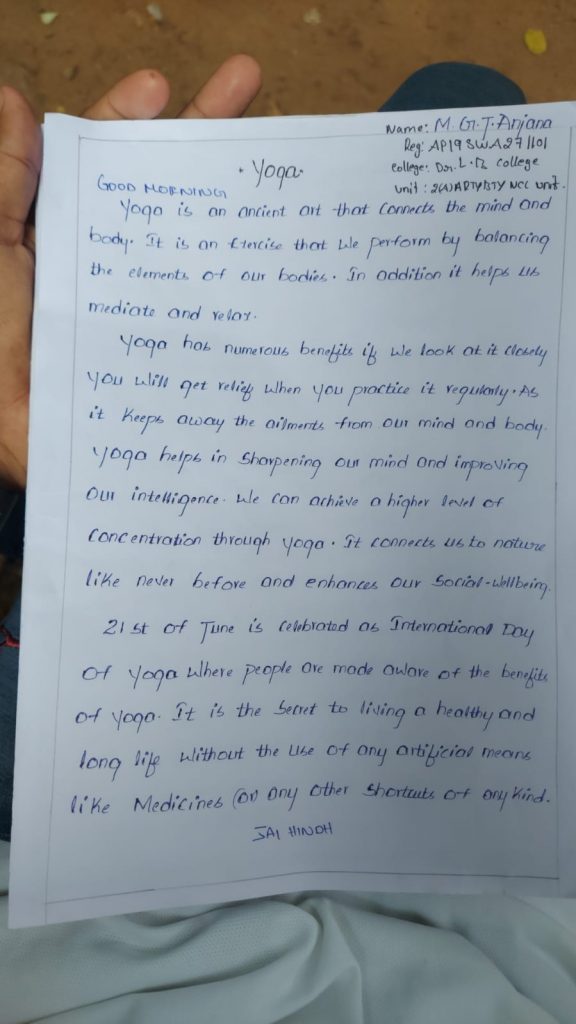 Name: M.G.T.Anjana
Reg: AP19SWA271101
College: Dr. L.B College
Unit: 2(A)APTYBTY NCC Unit.
• Yoga •
GOOD MORNING
Yoga is an ancient art that connects the mind and
body. It is an Exercise that we perform by balancing
the elements of our bodies. In addition it helps us
mediate and relax.
Yoga has numerous benefits if we look at it closely
you will get relief when you practice it regularly. As
it keeps away the ailments from our mind and body.
Yoga helps in sharpening our mind and improving
our intelligence. We can achieve a higher level of
concentration through yoga. It connects us to nature
like never before and enhances our social-wellbeing.
21st of June is celebrated as International Day
of yoga where people are made aware of the benefits
of yoga. It is the secret to living a healthy and
long life without the use of any artificial means
like Medicines (or) any other shortcuts of any kind.
JAI HINDH